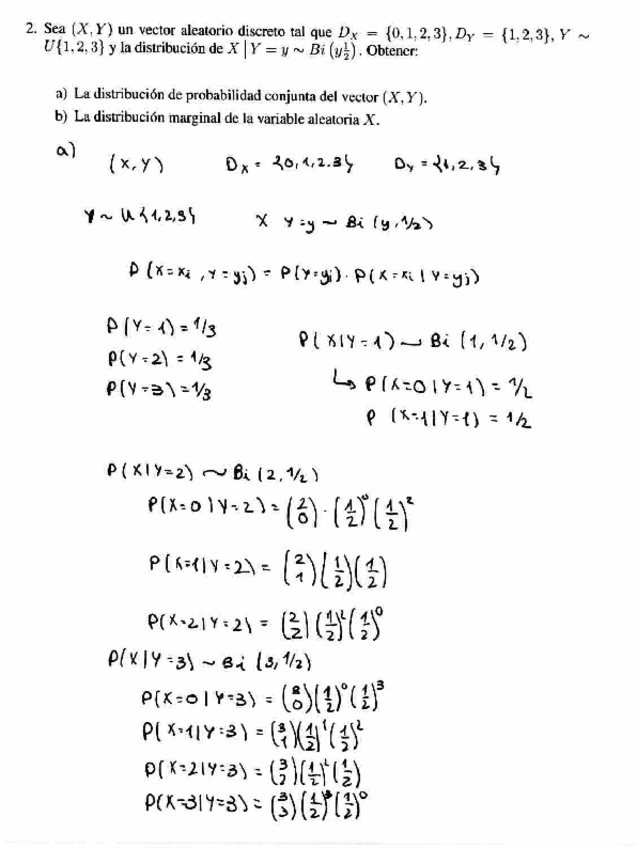 2. Sea (X, Y) un vector aleatorio discreto tal que D_X = {0, 1, 2, 3}, D_Y = {1, 2, 3}, Y ∼
U{1, 2, 3} y la distribución de X | Y = y ∼ Bi (y½). Obtener:
a) La distribución de probabilidad conjunta del vector (X, Y).
b) La distribución marginal de la variable aleatoria X.
a) (X, Y) D_X = {0, 1, 2, 3} D_Y = {1, 2, 3}
Y ∼ U{1, 2, 3} X Y=y ∼ Bi (y, 1/2)
P(X=x_i, Y=y_j) = P(Y=y_j) · P(X=x_i | Y=y_j)
P(Y=1) = 1/3
P(Y=2) = 1/3
P(Y=3) = 1/3
P(X|Y=1) ∼ Bi (1, 1/2)
↳ P(X=0|Y=1) = 1/2
P(X=1|Y=1) = 1/2
P(X|Y=2) ∼ Bi (2, 1/2)
P(X=0|Y=2) = (2 0) · (1/2)⁰ (1/2)²
P(X=1|Y=2) = (2 1) (1/2) (1/2)
P(X=2|Y=2) = (2 2) (1/2)² (1/2)⁰
P(X|Y=3) ∼ Bi (3, 1/2)
P(X=0|Y=3) = (3 0) (1/2)⁰ (1/2)³
P(X=1|Y=3) = (3 1) (1/2)¹ (1/2)²
P(X=2|Y=3) = (3 2) (1/2)² (1/2)
P(X=3|Y=3) = (3 3) (1/2)³ (1/2)⁰